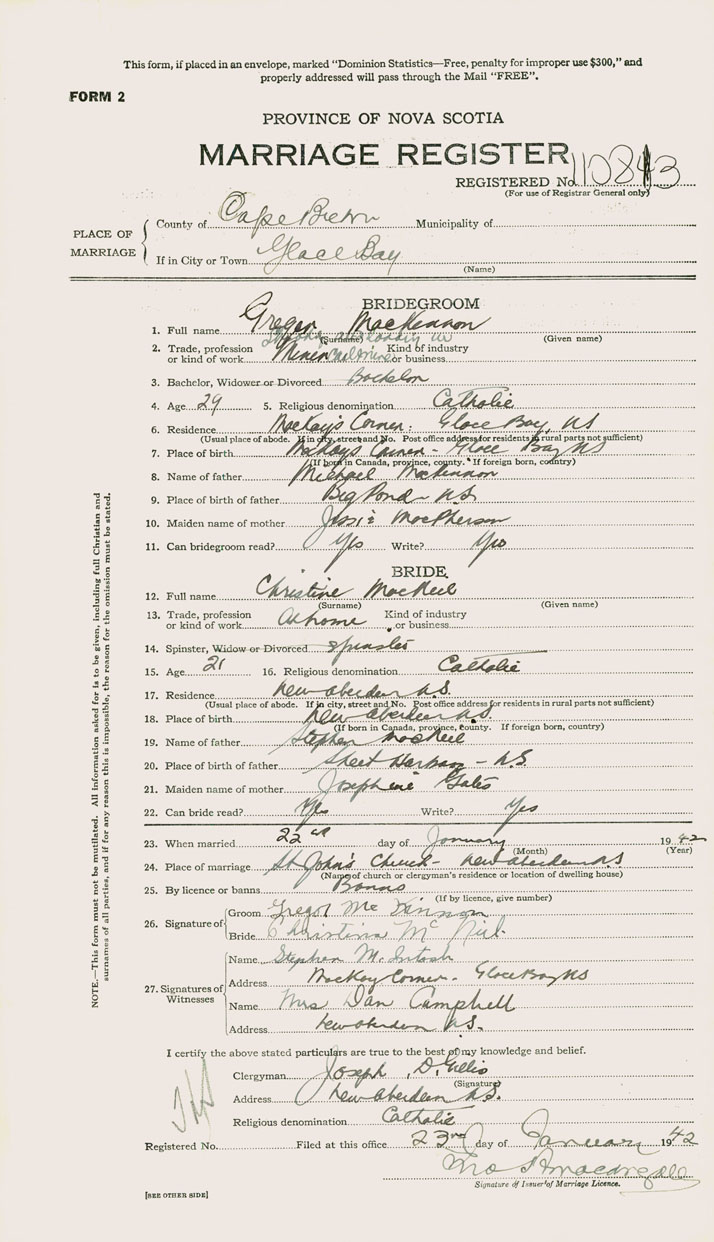 This form, if placed in an envelope, marked "Dominion Statistics—Free, penalty for improper use $300," and
properly addressed will pass through the Mail "FREE".
FORM 2
PROVINCE OF NOVA SCOTIA
MARRIAGE REGISTER
REGISTERED No. 110843
(For use of Registrar General only)
PLACE OF MARRIAGE
County of Cape Breton Municipality of
If in City or Town Glace Bay
(Name)
BRIDEGROOM
1. Full name Gregor MacKinnon
(Surname) (Given name)
2. Trade, profession or kind of work Miner Kind of industry or business
3. Bachelor, Widower or Divorced Bachelor
4. Age 29 5. Religious denomination Catholic
6. Residence MacKay's Corner: Glace Bay, NS
(Usual place of abode. If in city, street and No. Post office address for residents in rural parts not sufficient)
7. Place of birth MacKays Corner - Glace Bay NS
(If born in Canada, province, county. If foreign born, country)
8. Name of father Michael MacKinnon
9. Place of birth of father Big Pond - N.S.
10. Maiden name of mother Jessie MacPherson
11. Can bridegroom read? Yes Write? Yes
BRIDE
12. Full name Christine MacNeil
(Surname) (Given name)
13. Trade, profession or kind of work At home Kind of industry or business
14. Spinster, Widow or Divorced Spinster
15. Age 21 16. Religious denomination Catholic
17. Residence New Aberdeen N.S.
(Usual place of abode. If in city, street and No. Post office address for residents in rural parts not sufficient)
18. Place of birth New Aberdeen N.S.
(If born in Canada, province, county. If foreign born, country)
19. Name of father Stephen MacNeil
20. Place of birth of father Sheet Harbour - N.S.
21. Maiden name of mother Josephine Gates
22. Can bride read? Yes Write? Yes
23. When married 22nd day of January 1942
(Month) (Year)
24. Place of marriage St John's Church - New Aberdeen N.S
(Name of church or clergyman's residence or location of dwelling house)
25. By licence or banns Banns
(If by licence, give number)
26. Signature of
Groom Gregor Mc Kinnon
Bride Christina Mc Neil
27. Signatures of Witnesses
Name Stephen McIntosh
Address MacKay Corner - Glace Bay NS
Name Mrs Dan Campbell
Address New Aberdeen N.S.
I certify the above stated particulars are true to the best of my knowledge and belief.
Clergyman Joseph D. Gillis
(Signature)
Address New Aberdeen N.S.
Religious denomination Catholic
Registered No. Filed at this office 23rd day of January 1942
Signature of Issuer of Marriage Licence.
[SEE OTHER SIDE]
NOTE.—This form must not be mutilated. All information asked for is to be given, including full Christian and
surnames of all parties, and if for any reason this is impossible, the reason for the omission must be stated.